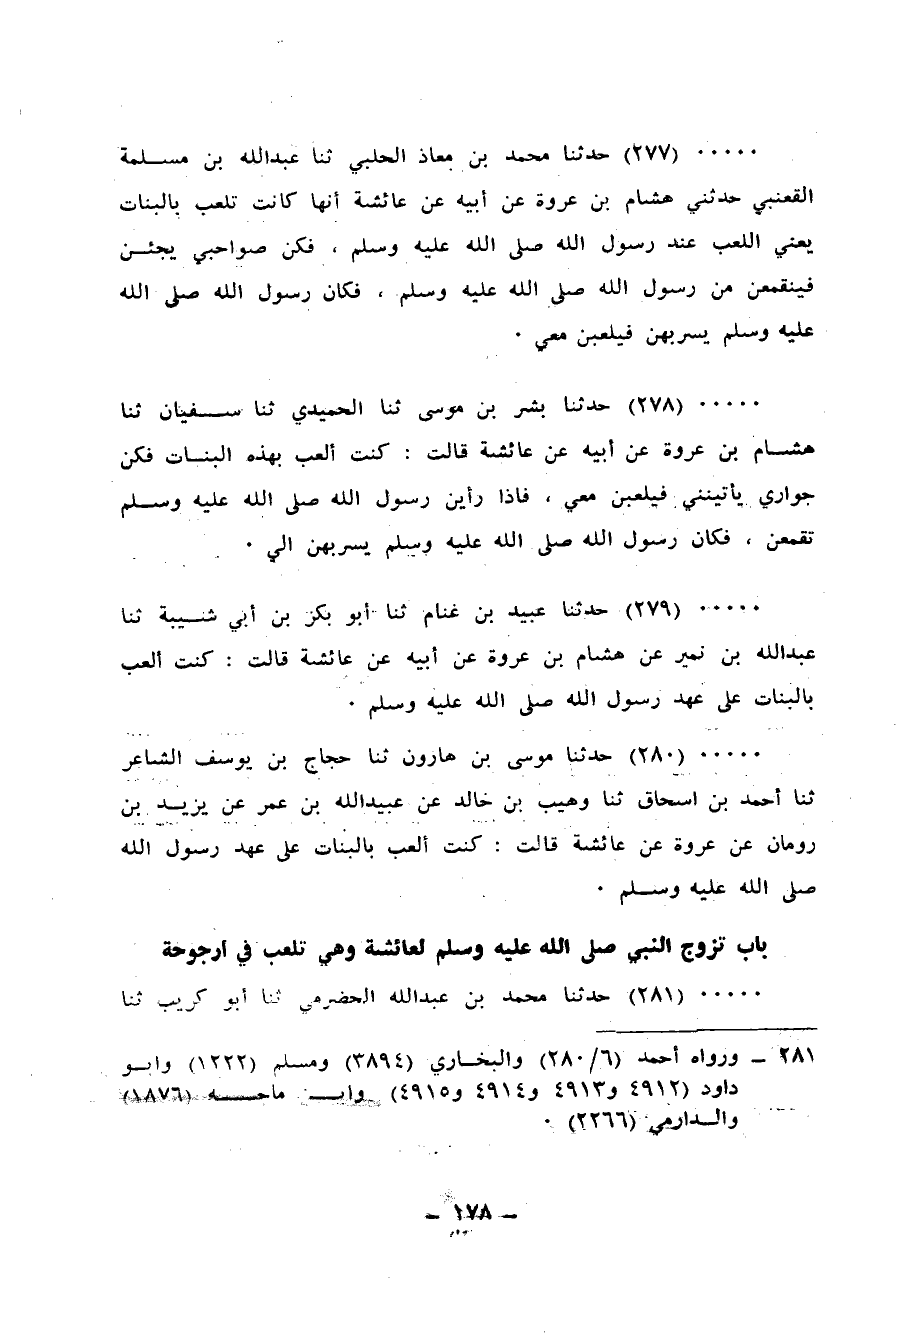 ٠٠٠٠٠ (٢٧٧) حدثنا محمد بن معاذ الحلبي ثنا عبدالله بن مســلمة
القعنبي حدثني هشام بن عروة عن أبيه عن عائشة أنها كانت تلعب بالبنات
يعني اللعب عند رسول الله صلى الله عليه وسلم ، فكن صواحبي يجئــن
فينقمعن من رسول الله صلى الله عليه وسلم ، فكان رسول الله صلى الله
عليه وسلم يسربهن فيلعبن معي ٠
٠٠٠٠٠ (٢٧٨) حدثنا بشر بن موسى ثنا الحميدي ثنا ســفيان ثنا
هشــام بن عروة عن أبيه عن عائشة قالت : كنت ألعب بهذه البنــات فكن
جواري يأتينني فيلعبن معي ، فاذا رأين رسول الله صلى الله عليه وســلم
تقمعن ، فكان رسول الله صلى الله عليه وسلم يسربهن الي ٠
٠٠٠٠٠ (٢٧٩) حدثنا عبيد بن غنام ثنا أبو بكر بن أبي شــيبة ثنا
عبدالله بن نمير عن هشام بن عروة عن أبيه عن عائشة قالت : كنت ألعب
بالبنات على عهد رسول الله صلى الله عليه وسلم ٠
٠٠٠٠٠ (٢٨٠) حدثنا موسى بن هارون ثنا حجاج بن يوسف الشاعر
ثنا أحمد بن اسحاق ثنا وهيب بن خالد عن عبيدالله بن عمر عن يزيــد بن
رومان عن عروة عن عائشة قالت : كنت ألعب بالبنات على عهد رسول الله
صلى الله عليه وســلم ٠
باب تزوج النبي صلى الله عليه وسلم لعائشة وهي تلعب في ارجوحة
٠٠٠٠٠ (٢٨١) حدثنا محمد بن عبدالله الحضرمي ثنا أبو كريب ثنا
٢٨١ ــ ورواه أحمد (٢٨٠/٦) والبخــاري (٣٨٩٤) ومسلم (١٢٢٢) وابــو
داود (٤٩١٢ و٤٩١٣ و٤٩١٤ و٤٩١٥) وابـــن ماجـــه (١٨٧٦)
والــدارمي (٢٢٦٦) ٠
ــ ١٧٨ ــ